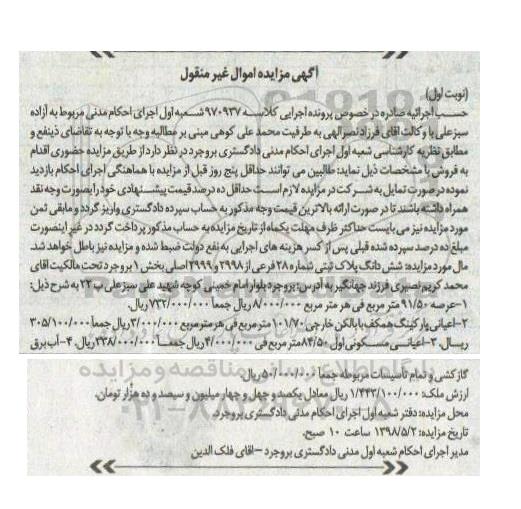 آگهی مزایده اموال غیر منقول
(نوبت اول)
حسب اجرائیه صادره در خصوص پرونده اجرایی کلاسه ۹۷۰۹۳۷ شعبه اول اجرای احکام مدنی مربوط به آزاده
سبزعلی با وکالت آقای فرزاد نصرالهی به طرفیت محمد علی کوهی مبنی بر مطالبه وجه با توجه به تقاضای ذینفع و
مطابق نظریه کارشناسی شعبه اول اجرای احکام مدنی دادگستری بروجرد در نظر دارد از طریق مزایده حضوری اقدام
به فروش با مشخصات ذیل نماید: طالبین می توانند حداقل پنج روز قبل از مزایده با هماهنگی اجرای احکام بازدید
نموده در صورت تمایل به شرکت در مزایده لازم است حداقل ده درصد قیمت پیشنهادی خود را بصورت وجه نقد
همراه داشته باشند تا در صورت ارائه بالاترین قیمت وجه مذکور به حساب سپرده دادگستری واریز گردد و مابقی ثمن
مورد مزایده نیز می بایست حداکثر ظرف مهلت یکماه از تاریخ مزایده به حساب مذکور پرداخت گردد در غیر اینصورت
مبلغ ده درصد سپرده شده قبلی پس از کسر هزینه های اجرایی به نفع دولت ضبط شده و مزایده نیز باطل خواهد شد.
مال مورد مزایده: شش دانگ پلاک ثبتی شماره ۲۸ فرعی از ۲۹۹۸ و ۲۹۹۹ اصلی بخش ۱ بروجرد تحت مالکیت آقای
محمد کریم نصیری فرزند جهانگیر به آدرس: بروجرد بلوار امام خمینی کوچه شهید علی سبزعلی پ ۲۲ به شرح ذیل:
۱-عرصه ۹۱/۵۰ متر مربع فی هر متر مربع ۸/۰۰۰/۰۰۰ ریال جمعا ۷۳۲/۰۰۰/۰۰۰ ریال.
۲-اعیانی پارکینگ همکف با بالکن خارجی ۱۰۱/۷۰ متر مربع فی هر متر مربع ۳/۰۰۰/۰۰۰ ریال جمعاً ۳۰۵/۱۰۰/۰۰۰
ریال. ۳-اعیانی مسکونی اول ۸۴/۵۰ متر مربع فی ۴/۰۰۰/۰۰۰ ریال جمعاً ۳۳۸/۰۰۰/۰۰۰ ریال. ۴-آب برق
گاز کشی و تمام تاسیسات مربوطه جمعا ۵۰/۰۰۰/۰۰۰ ریال.
ارزش ملک: ۱/۴۴۳/۱۰۰/۰۰۰ ریال معادل یکصد و چهل و چهار میلیون و سیصد و ده هزار تومان.
محل مزایده: دفتر شعبه اول اجرای احکام مدنی دادگستری بروجرد.
تاریخ مزایده: ۱۳۹۸/۵/۲ ساعت ۱۰ صبح.
مدیر اجرای احکام شعبه اول مدنی دادگستری بروجرد -آقای فلک الدین